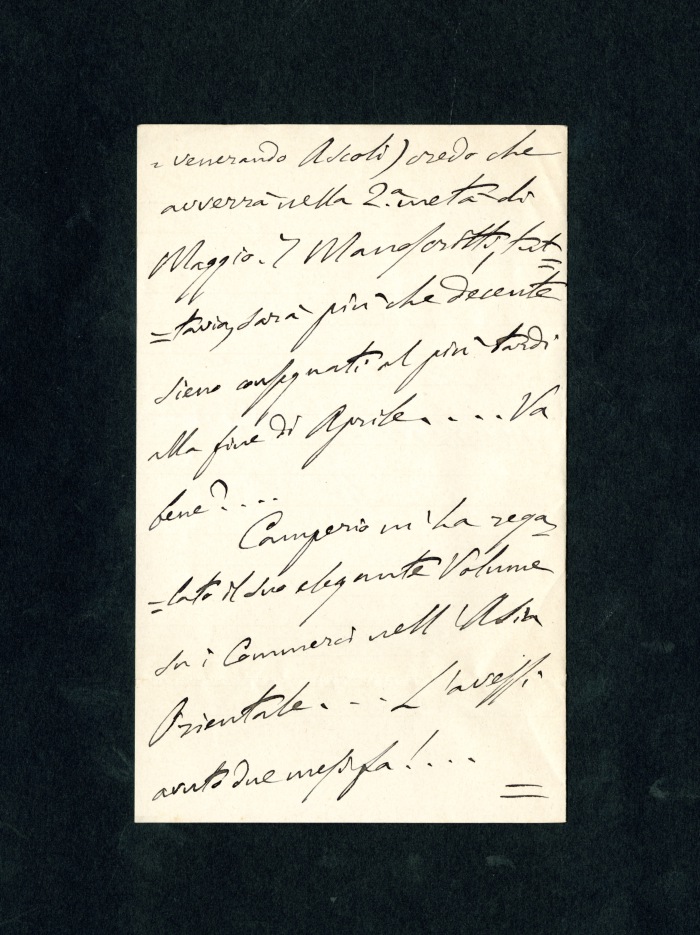 = venerando Ascoli) credo che
avverrà nella 2.ª metà di
Maggio. I Manoscritti, tut=
=tavia, sarà più che decente
sieno consegnati al più tardi
alla fine di Aprile. . . . Va
bene? . . . .
Camperio m'ha rega=
=lato il suo elegante Volume
su i Commerci nell'Asia
Orientale. . . . L'avessi
avuto due mesi fa! . . . .